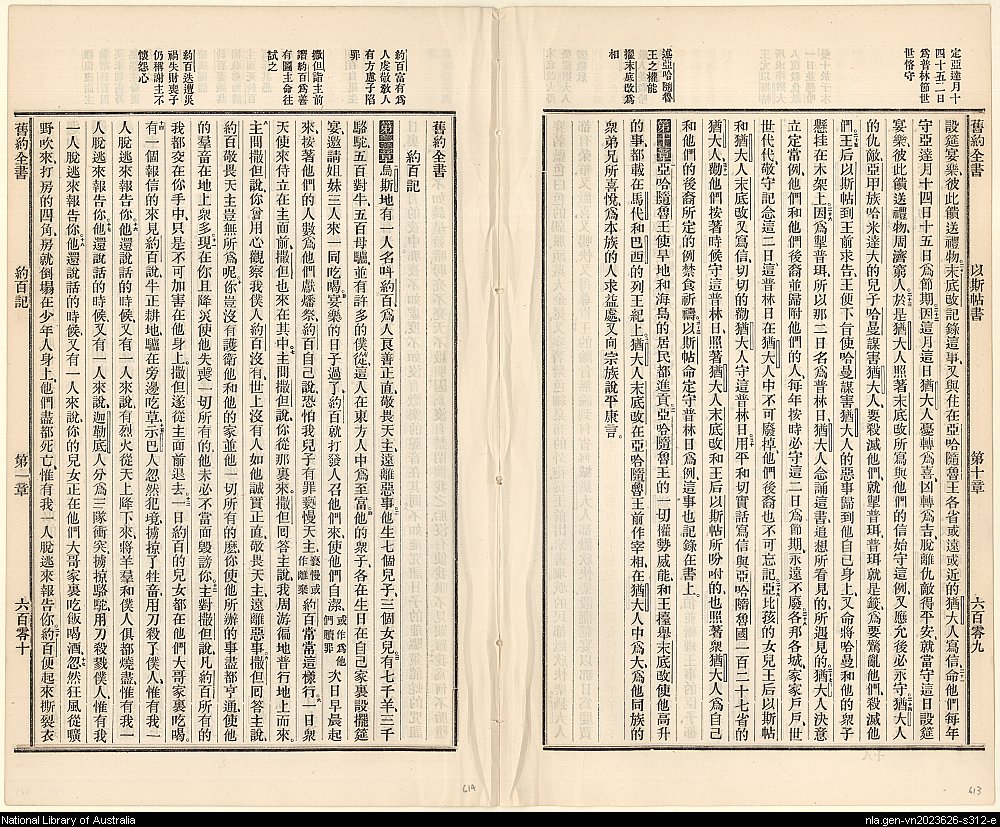 定亞達月十
四十五二日
為普林節世
世恪守
述亞哈隨魯
王之權能
擢末底改為
相
舊約全書
以斯帖書
第十章
六百零九
設筵宴樂、彼此餽送禮物、末底改記錄這事、又與住在亞哈隨魯王各省或遠或近的猶大人寫信、命他們每年
守亞達月十四日十五日為節期、因這月這日猶大人憂轉為喜、凶轉為吉、脫離仇敵得平安、就當守這日設筵
宴樂、彼此餽送禮物、周濟窮人、於是猶大人照著末底改所寫與他們的信、始守這例、又應允後必永守、猶大人
的仇敵亞甲族哈米達大的兒子哈曼、謀害猶大人、要殺滅他們、就掣普珥、普珥就是籤、為要驚亂他們、殺滅他
們、王后以斯帖到王前求告、王便下旨使哈曼謀害猶大人的惡事歸到他自己身上、又命將哈曼和他的衆子
懸挂在木架上、因為掣普珥、所以那二日名為普林日、猶大人念誦這書、追想所看見的、所遇見的、猶大人決意
立定常例、他們和他們後裔、並歸附他們的人、每年按時必守這二日為節期、永遠不廢、各邦各城、家家戶戶、世
世代代、敬守記念這二日、這普林日、在猶大人中不可廢掉、他們後裔也不可忘記、亞比孩的女兒王后以斯帖
和猶大人末底改又寫信、切切的勸猶大人守這普林日、用平和切實話寫信與亞哈隨魯國一百二十七省的
猶大人、勸他們按著時候守這普林日、照著猶大人末底改和王后以斯帖所吩咐的、也照著衆猶大人為自己
和他們的後裔所定的例、禁食祈禱、以斯帖命定守普林日為例、這事也記錄在書上。
第十章亞哈隨魯王使旱地和海島的居民都進貢、亞哈隨魯王的一切權勢威能、和王擡舉末底改使他高升
的事、都載在馬代和巴西的列王紀上、猶大人末底改在亞哈隨魯王前作宰相、在猶大人中為大、為他同族的
衆弟兄所喜悅、為本族的人求益處、又向宗族說平康言。
約百富有為
人虔敬教人
有方慮子陷
罪
撒但詣主前
譖約百為善
有圖主命往
試之
約百迭遭災
禍失財喪子
仍稱謝主不
懷怨心
舊約全書
約百記
第一章烏斯地有一人名呌約百、為人良善正直、敬畏天主、遠離惡事、他生七個兒子三個女兒、有七千羊、三千
駱駝、五百對牛、五百母驢、並有許多的僕從、這人在東方人中為至富、他的衆子各在生日在自己家裏設擺筵
宴、邀請姐妹三人來一同吃喝、宴樂的日子過了、約百就打發人召他們來、使他們自潔、或作為他們贖罪次日早晨起
來、按著他們的人數為他們獻燔祭、約百自己說、恐怕我兒子有罪、褻慢天主、褻慢或作離棄約百常常這樣行、一日衆
天使來侍立在主面前、撒但也來在其中、主問撒但說、你從那裏來、撒但回答主說、我周游徧地、普行地上而來、
主問撒但說、你曾用心觀察我僕人約百沒有、世上沒有人如他誠實正直、敬畏天主、遠離惡事、撒但回答主說、
約百敬畏天主豈無所為呢、你豈沒有護衛他和他的家、並他一切所有的麼、你使他所辦的事盡都亨通、使他
的羣畜在地上衆多、現在你且降災使他失喪一切所有的、他未必不當面毀謗你、主對撒但說、凡約百所有的
我都交在你手中、只是不可加害在他身上、撒但遂從主面前退去、一日約百的兒女都在他們大哥家裏吃喝、
有一個報信的來見約百說、牛正耕地、驢在旁邊吃草、示巴人忽然犯境、擄掠了牲畜、用刀殺了僕人、惟有我一
人脫逃來報告你、他還說話的時候、又有一人來說、有烈火從天上降下來、將羊羣和僕人俱都燒盡、惟有我一
人脫逃來報告你、他還說話的時候、又有一人來說、迦勒底人分為三隊衝突、擄掠駱駝、用刀殺戮僕人、惟有我
一人脫逃來報告你、他還說話的時候、又有一人來說、你的兒女正在他們大哥家裏吃飯喝酒、忽然狂風從曠
野吹來、打房的四角、房就倒塌在少年人身上、他們盡都死亡、惟有我一人脫逃來報告你、約百便起來撕裂衣
舊約全書
約百記
第一章
六百零十
614
613
National Library of Australia
nla.gen-vn2023626-s312-e